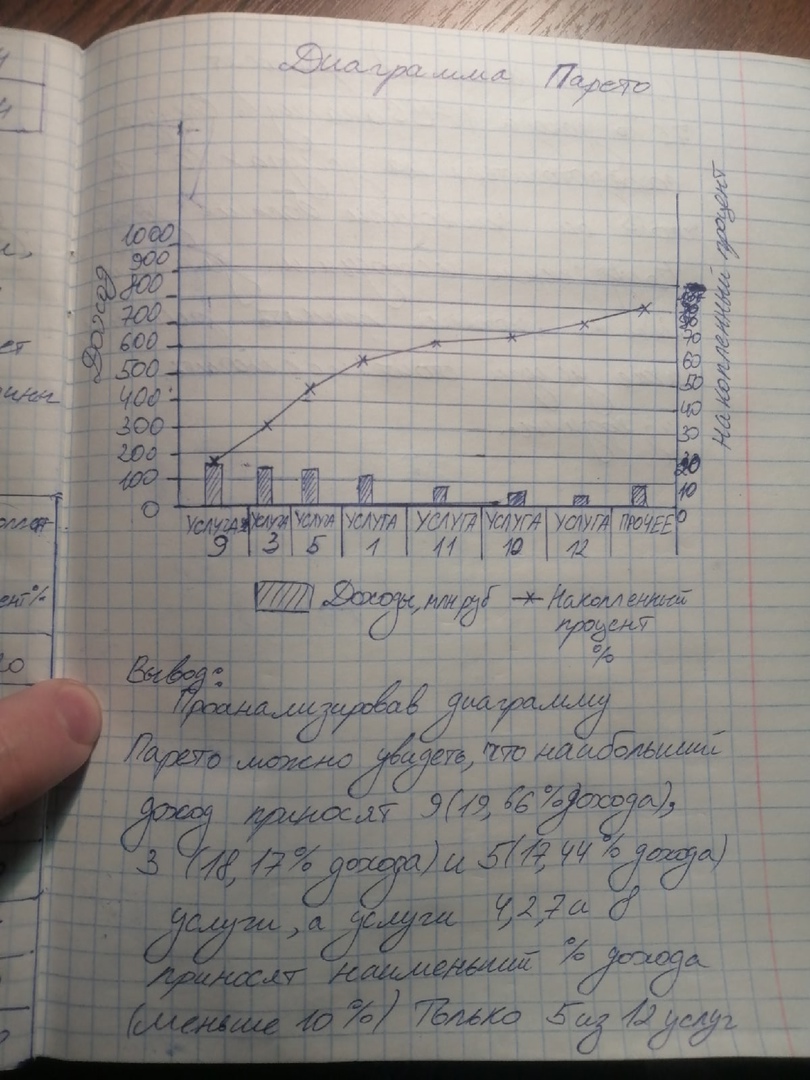 Диаграмма Парето
Доход
1000
900
800
700
600
500
400
300
200
100
0
Накопленный процент
70
60
50
40
30
20
10
0
УСЛУГА 9
УСЛУГА 3
УСЛУГА 5
УСЛУГА 1
УСЛУГА 11
УСЛУГА 10
УСЛУГА 12
ПРОЧЕЕ
Доходы, млн руб
Накопленный
процент
%
Вывод:
Проанализировав диаграмму
Парето можно увидеть, что наибольший
доход приносят 9 (19,66% дохода),
3 (18,17% дохода) и 5 (17,44% дохода)
услуги, а услуги 4,2,7 и 8
приносят наименьший % дохода
(меньше 10%) Только 5 из 12 услуг